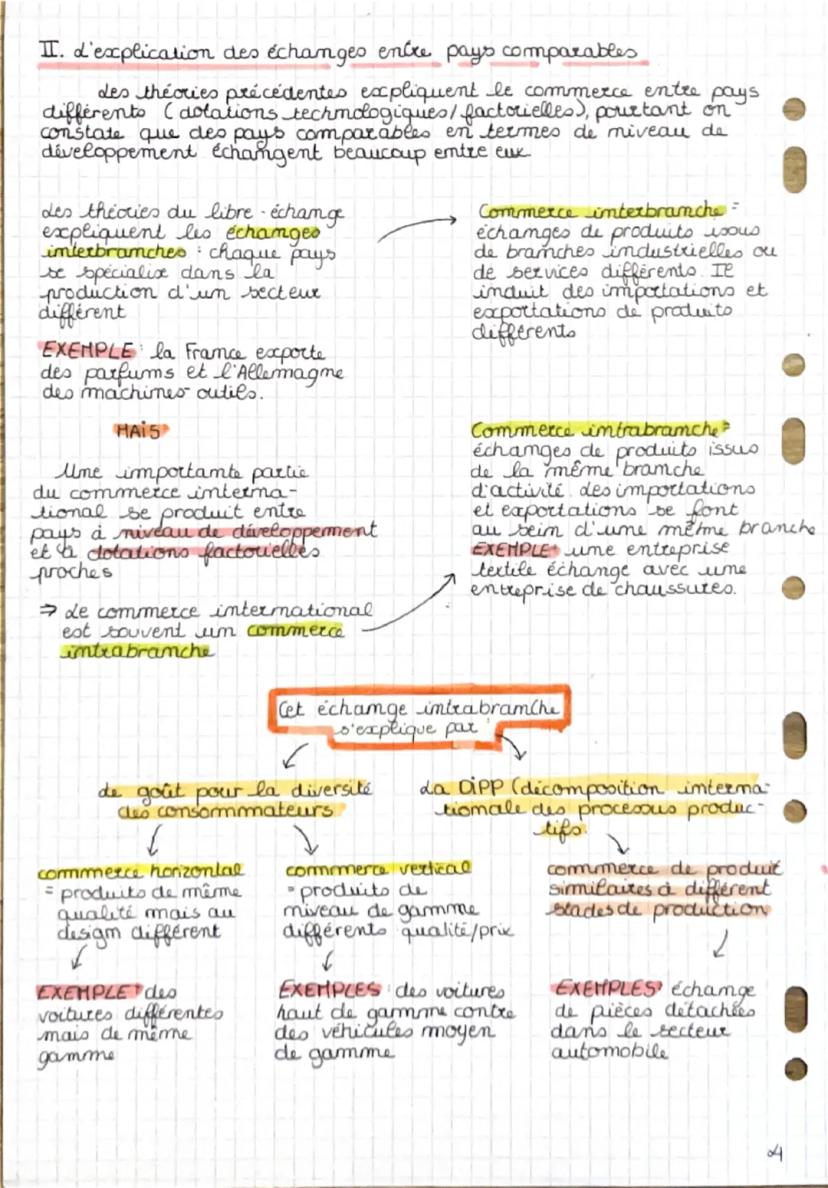 II. L'explication des échanges entre pays comparables
Les théories précédentes expliquent le commerce entre pays
différents (dotations technologiques/factorielles), pourtant on
constate que des pays comparables en termes de niveau de
développement échangent beaucoup entre eux
Les théories du libre-échange
expliquent les échanges
interbranches : chaque pays
se spécialise dans la
production d'un secteur
différent
EXEMPLE : la France exporte
des parfums et l'Allemagne
des machines-outils.
Commerce interbranche =
échanges de produits issus
de branches industrielles ou
de services différents. Il
induit des importations et
exportations de produits
différents
MAIS
Une importante partie
du commerce interna-
tional se produit entre
pays à niveau de développement
et à dotations factorielles
proches
⇒ Le commerce international
est souvent un commerce
intrabranche
Commerce intrabranche =
échanges de produits issus
de la même branche
d'activité. Les importations
et exportations se font
au sein d'une même branche
EXEMPLE : une entreprise
textile échange avec une
entreprise de chaussures.
Cet échange intrabranche
s'explique par
Le goût pour la diversité
des consommateurs
La DiPP (décomposition interna-
tionale des processus produc-
tifs
commerce horizontal
= produits de même
qualité mais au
design différent
EXEMPLE : des
voitures différentes
mais de même
gamme
commerce vertical
= produits de
niveau de gamme
différents qualité/prix
EXEMPLES : des voitures
haut de gamme contre
des véhicules moyen
de gamme
commerce de produit
similaires à différent
stades de production
EXEMPLES : échange
de pièces détachées
dans le secteur
automobile